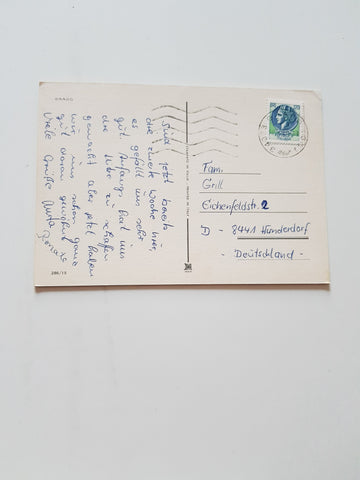 GRADO
Sind jetzt bereits
die zweite Woche hier,
es gefällt uns sehr
gut. Anfangs hat uns
die Hitze zu schaffen
gemacht aber jetzt haben
wir uns schon ganz
gut daran gewöhnt
Viele Grüße
Fam.
Grill
Eichenfeldstr. 2
D - 8441 Hunderdorf
- Deutschland -
286/15